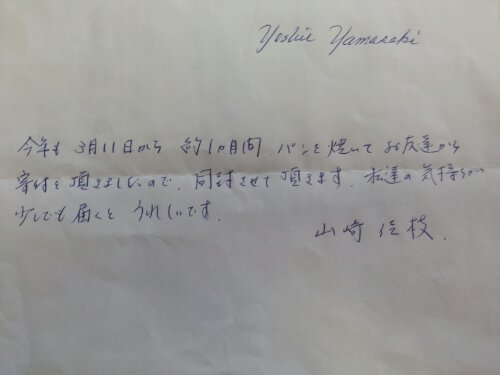 Yoshie Yamasaki
今年も 3月11日から 約1ヶ月間、パンを焼いて お友達から
寄付を頂きましたので、同封させて頂きます。私達の気持ちが
少しでも 届くと うれしいです。
山崎 信枝.